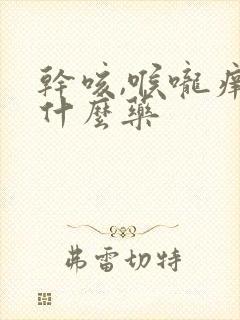 幹咳,喉嚨癢
什麼藥
弗雷切特